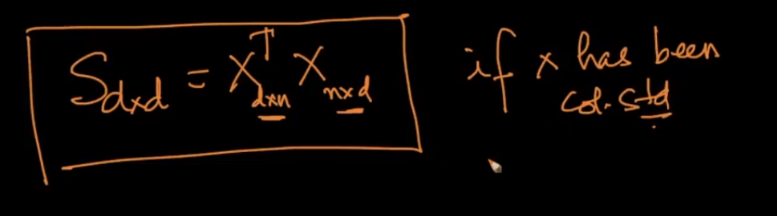 S_{d×d} = X^T_{d×n} X_{n×d}
if X has been
col. std